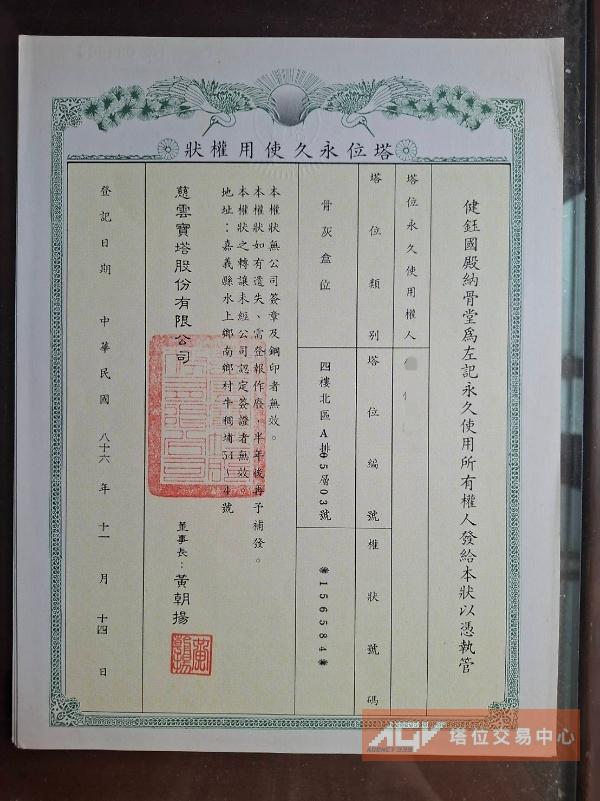 塔位永久使用權狀
健鈺國殿納骨堂為左記永久使用所有權人發給本狀以憑執管
塔位永久使用權人
塔位類別
塔位編號
權狀號碼
骨灰盒位
四樓北區A排05層03號
*156584*
本權狀無公司簽章及鋼印者無效。
本權狀如有遺失、需登報作廢,半年後再予補發。
本權狀之轉讓未經公司認定簽證者無效。
地址:嘉義縣水上鄉南鄉村牛稠埔54-4號
慈雲寶塔股份有限公司
董事長:黃朝揚
登記日期 中華民國 八十六 年 十一 月 十四 日
AGV 塔位交易中心